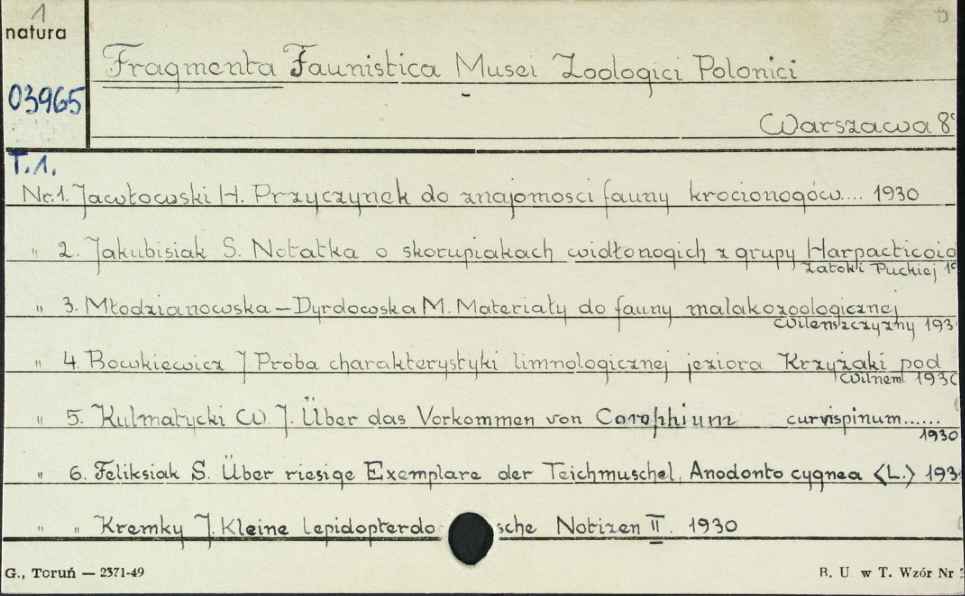 1
natura
03965
Fragmenta Faunistica Musei Zoologici Polonici
Warszawa 8°
T.1.
Nr.1. Jawłowski H. Przyczynek do znajomosci fauny krocionogów.... 1930
" 2. Jakubisiak S. Notatka o skorupiakach widłonogich z grupy Harpacticoid
Zatoki Puckiej
" 3. Młodzianowska – Dyrdowska M. Materiały do fauny malakozoologicznej
Wilenszczyzny 193
" 4. Bowkiewicz J Próba charakterystyki limnologicznej jeziora Krzyżaki pod
Wilnem 1930
" 5. Kulmatycki W. J. Über das Vorkommen von Corophium curvispinum......
1930
" 6. Feliksiak S. Über riesige Exemplare der Teichmuschel, Anodonto cygnea <L.> 193
" " Kremky J. Kleine Lepidopterdo sche Notizen II. 1930
G., Toruń — 2371-49
B. U. w T. Wzór Nr